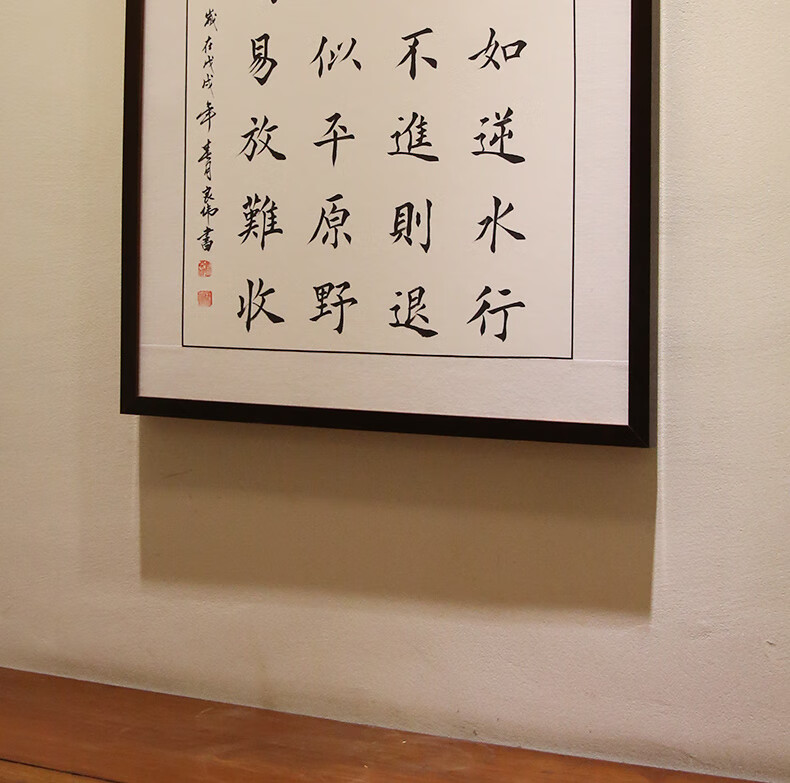 如逆水行
不進則退
似平原野
易放難收
歲在戊戌年春月家偉書